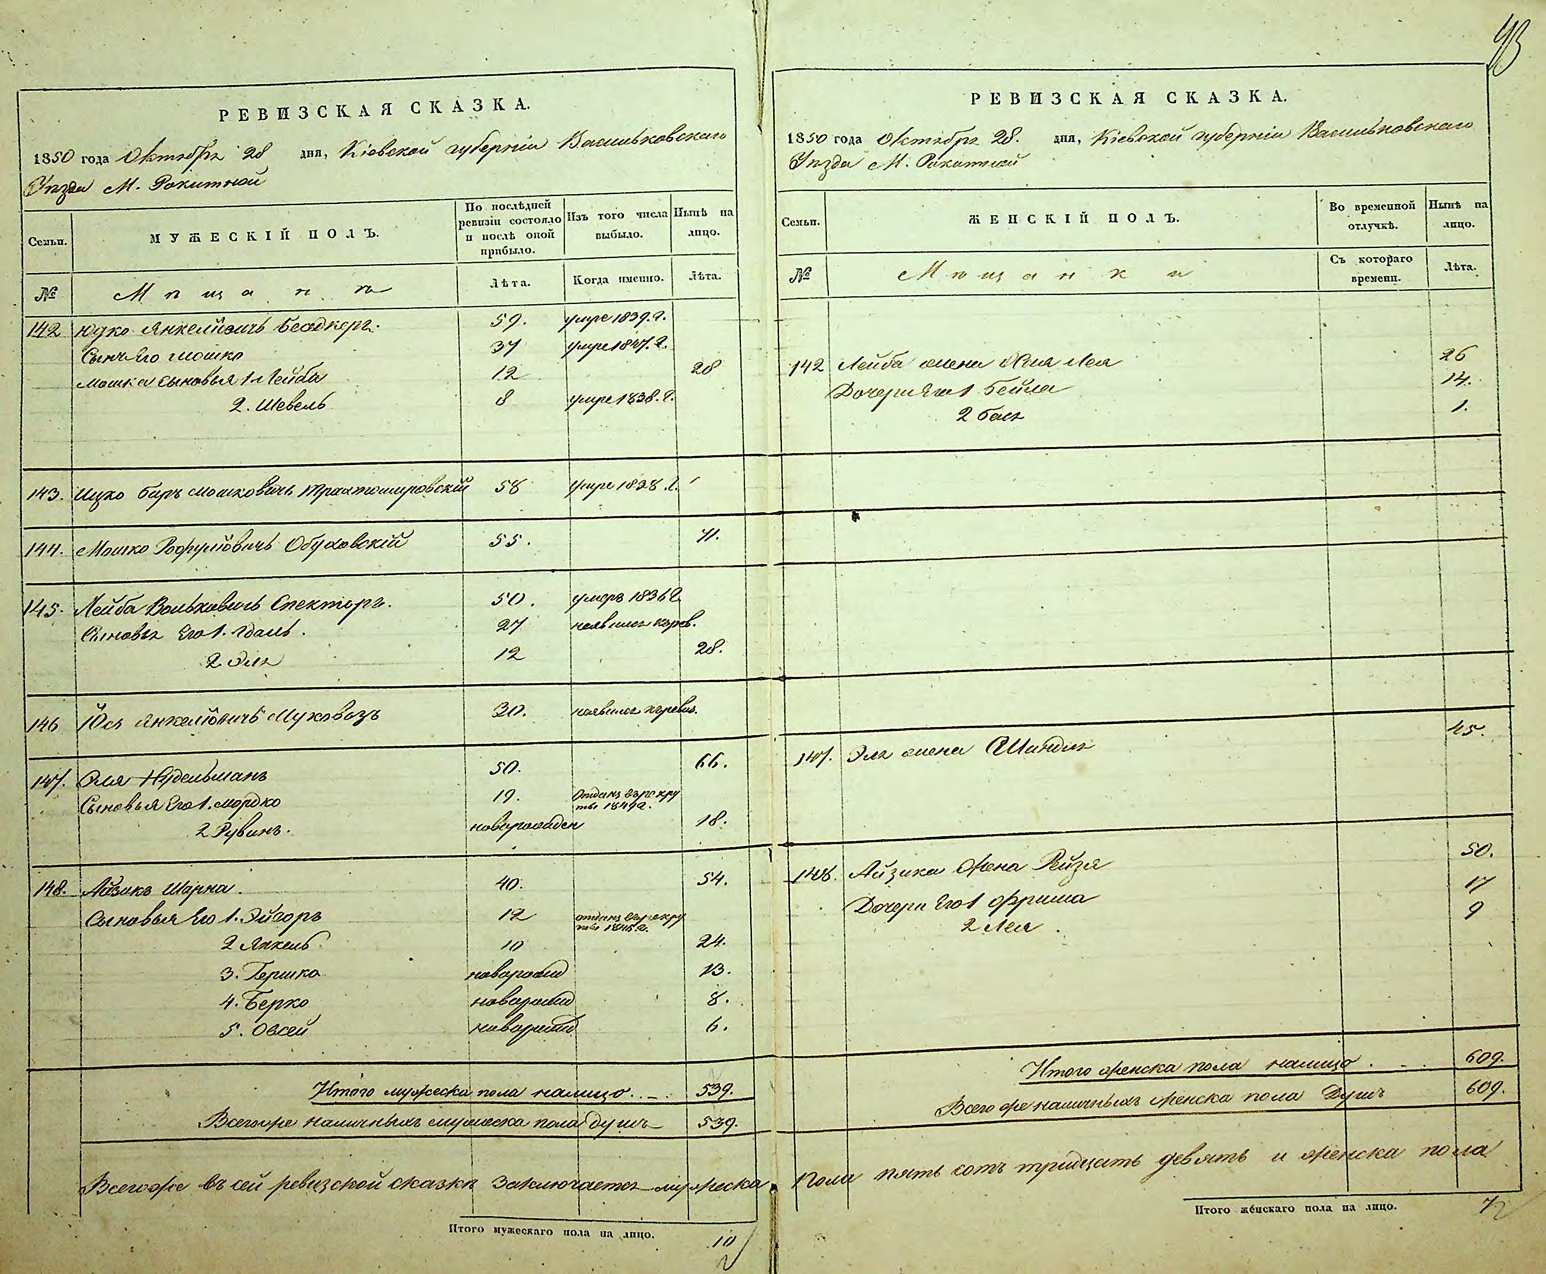 93
РЕВИЗСКАЯ СКАЗКА.
1850 года Октября 28 дня, Кіевской губерніи Васильковскаго
Уѣзда М. Рокитной
Семьи.
МУЖЕСКІЙ ПОЛЪ.
По послѣдней ревизіи состояло и послѣ оной прибыло.
Изъ того числа выбыло.
Нынѣ на лицо.
№
Мѣщанѣ
Лѣта.
Когда именно.
Лѣта.
142 Юдко Янкелiовичъ 59. умре 1839. г.
Сынъ Его Мошко 37 умре 1847. г.
Мошка сыновья 1 Лейба 12 28
2. Шевель 8 умре 1838. г.
143. Ицко Беръ Мошковичъ Трактомировскій 58 умре 1838. г.
144. Мошко Обуховскій 55. 71.
145. Лейба Вольковичъ Спекторъ. 50. умеръ 1836 г
Сыновья Его 1. 27 неявился
2 Эля 12 28.
146 Іось Янкеліовичъ Муковозъ 30. неявился
147. Эля Нудельманъ 50. 66.
Сыновья Его 1. Мордко 19. Отданъ въ рекру
ты 1844 г.
2 Рувинъ. новорожден 18.
148. Айзикъ Шорна. 40. 54.
Сыновья Его 1. 12 отданъ въ рекру
ты
2 Янкель 10 24.
3. Гершко новорожд 13.
4. Берко новорожд 8.
5. Овсей новорожд 6.
Итого мужеска пола налицо 539.
Всего же наличныхъ мужеска пола душъ 539.
Всего же въ сей ревизской сказкѣ заключается мужеска
Итого мужескаго пола на лицо. 10
РЕВИЗСКАЯ СКАЗКА.
1850 года Октября 28. дня, Кіевской губерніи Васильковскаго
Уѣзда М. Рокитной
Семьи.
ЖЕНСКІЙ ПОЛЪ.
Во временной отлучкѣ.
Нынѣ на лицо.
№
Мѣщанки
Съ котораго времени.
Лѣта.
142 Лейба жена Лея 26
Дочери Его 1 Бейла 14.
2 Бася 1.
147. Эля жена Шиндля 45.
148. Айзика Жена Рейзя 50.
Дочери Его 1 Фрима 17
2 Лея. 9
Итого женска пола налицо 609.
Всего же наличныхъ женска пола душъ 609.
пола пять сотъ тридцать девять и женска пола
Итого женскаго пола на лицо. 7